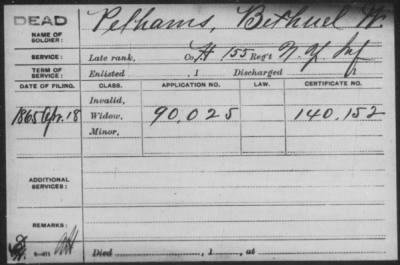 DEAD
NAME OF SOLDIER: Pelhams, Bethuel W.
SERVICE: Late rank, Co. H 155 Reg't N. Y. Inf
TERM OF SERVICE: Enlisted , 1 Discharged
DATE OF FILING. CLASS. APPLICATION NO. LAW. CERTIFICATE NO.
Invalid,
1865 Apr. 18 Widow, 90,025 140,152
Minor,
ADDITIONAL SERVICES:
REMARKS:
Died , 1 , at